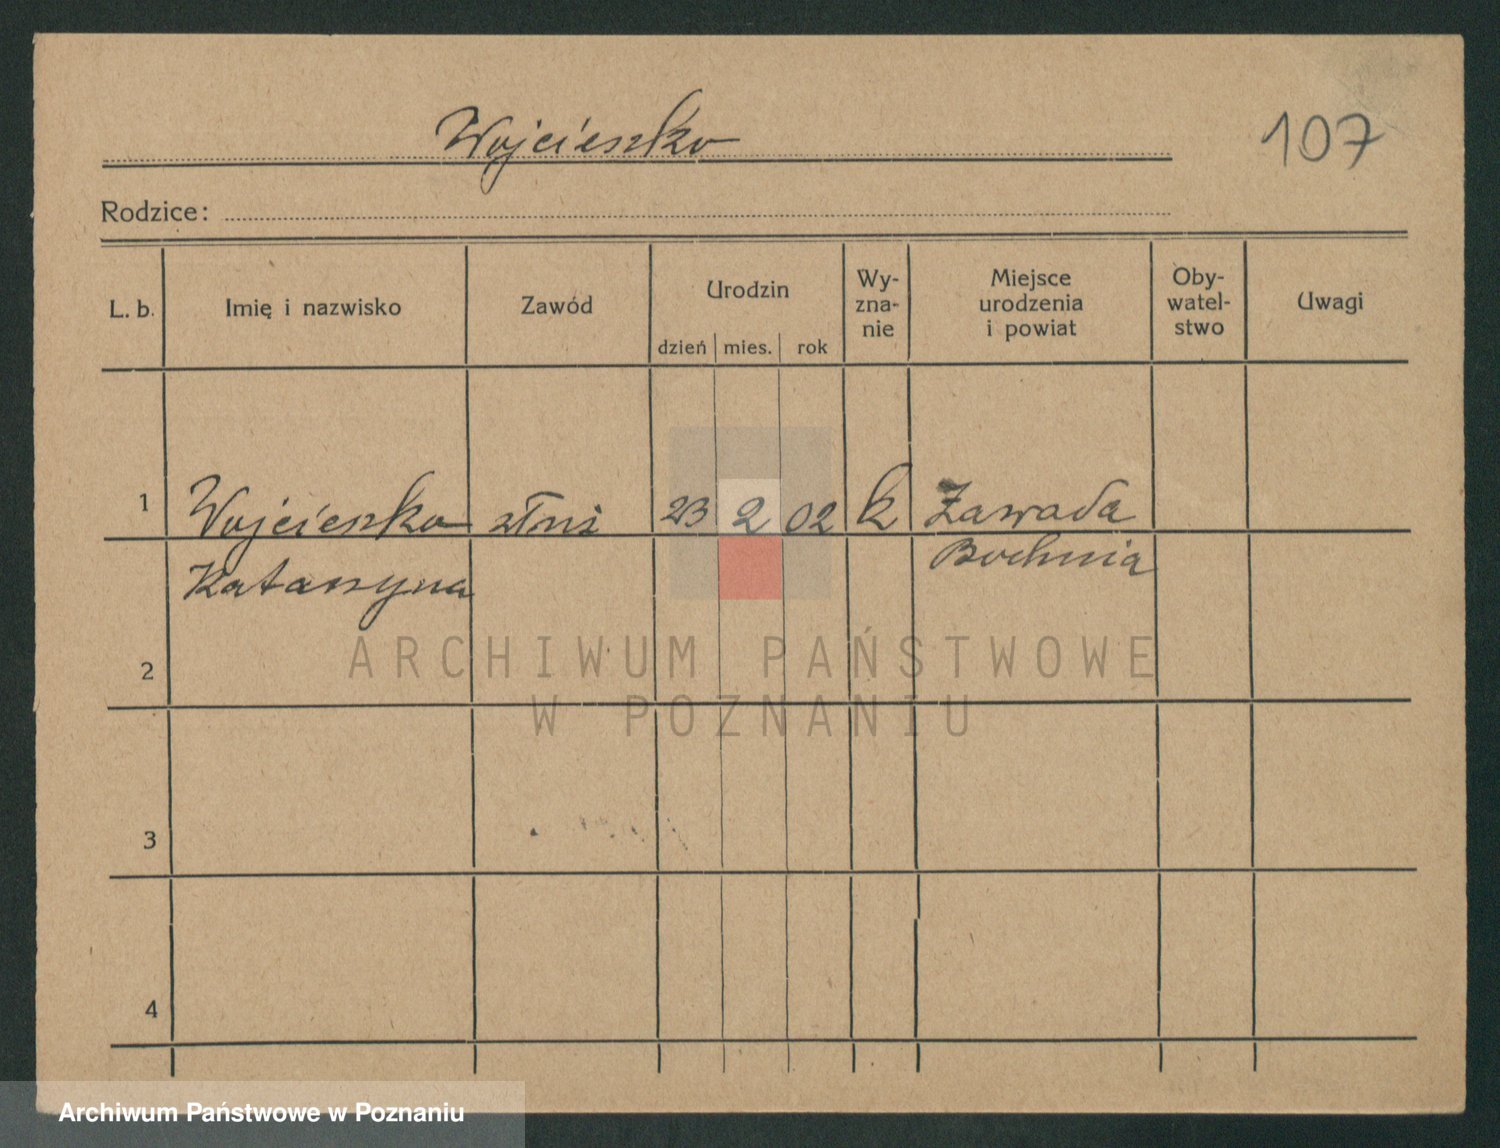 Wojcieszko
107
Rodzice:
L. b. Imię i nazwisko Zawód Urodzin Wy-
zna-
nie Miejsce
urodzenia
i powiat Oby-
watel-
stwo Uwagi
dzień mies. rok
1 Wojcieszko 23 2 02 k Zawada
Katarzyna Bochnia
2
ARCHIWUM PAŃSTWOWE
W POZNANIU
3
4
Archiwum Państwowe w Poznaniu